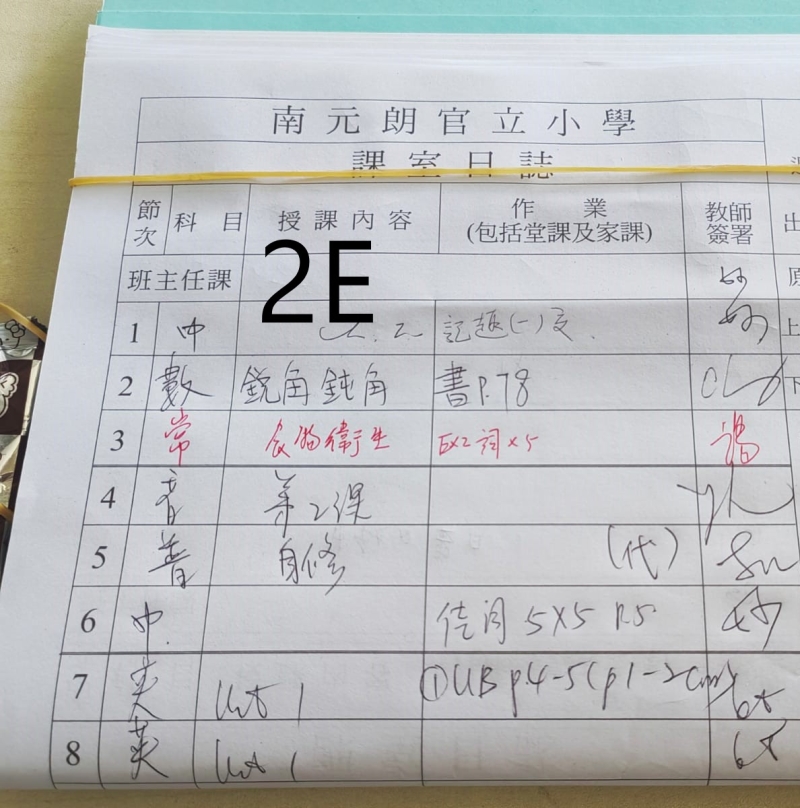 南元朗官立小學
課室日誌
節次 科目 授課內容 作業 (包括堂課及家課) 教師簽署 出
班主任課 2E
1 中 上
2 數 銳角 鈍角 書P.78
3 常 食物衛生 EX2 詞x5
4 音 第2課
5 普 自修 (代)
6 中 佳詞 5X5 P.5
7 英 Unit 1 ①UB p.4-5 (p1-2
8 英 Unit 1